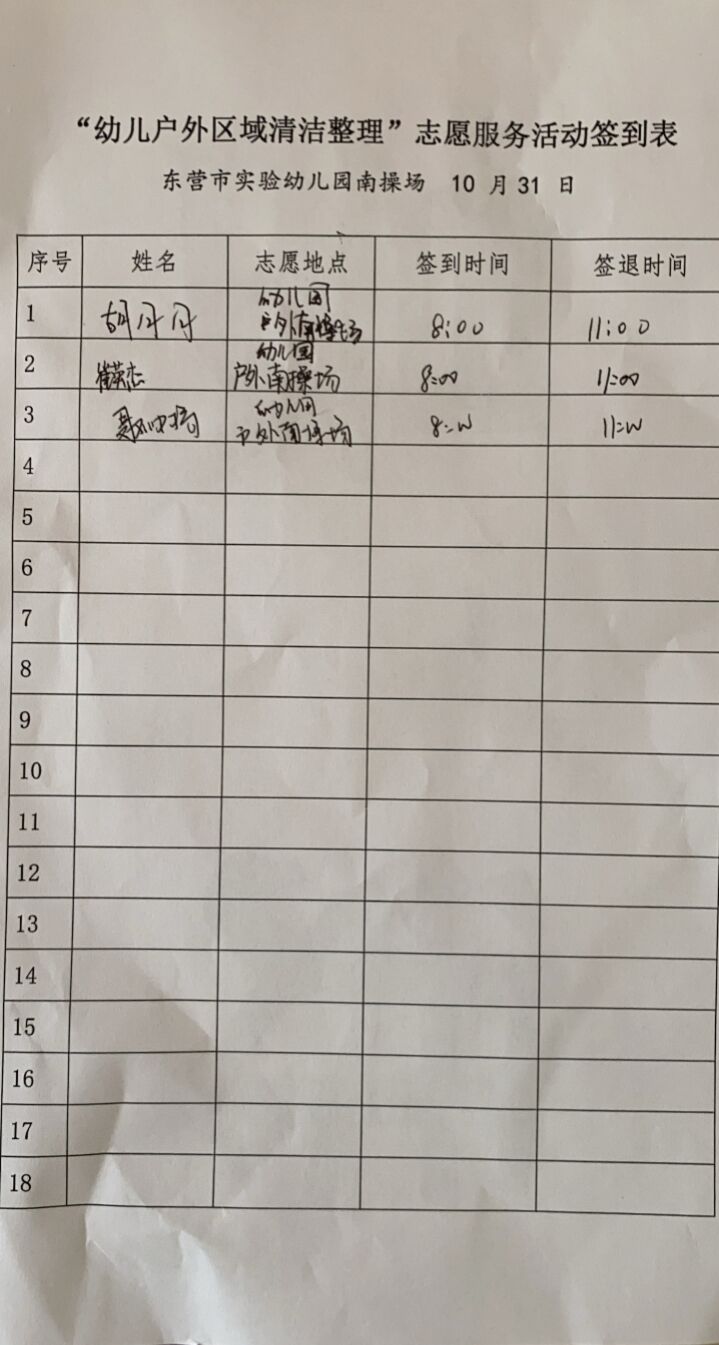 “幼儿户外区域清洁整理”志愿服务活动签到表
东营市实验幼儿园南操场 10 月 31 日
序号 姓名 志愿地点 签到时间 签退时间
幼儿园
1 胡丹丹 户外南操场 8:00 11:00
幼儿园
2 崔英杰 户外南操场 8:00 11:00
幼儿园
3 户外南操场 8:00 11:00
4
5
6
7
8
9
10
11
12
13
14
15
16
17
18